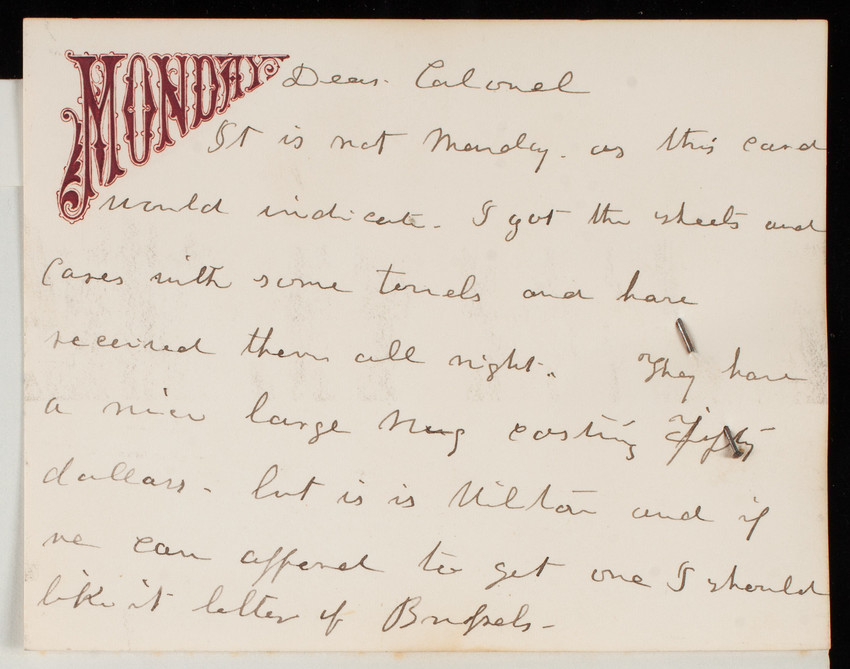 MONDAY Dear Colonel
It is not Monday. as this card
would indicate. I got the sheets and
Cases with some towels and have
received them all right. They have
a nice large Rug costing fifty
dollars - but is is Wilton and if
we can afford to get one I should
like it better if Brussels -